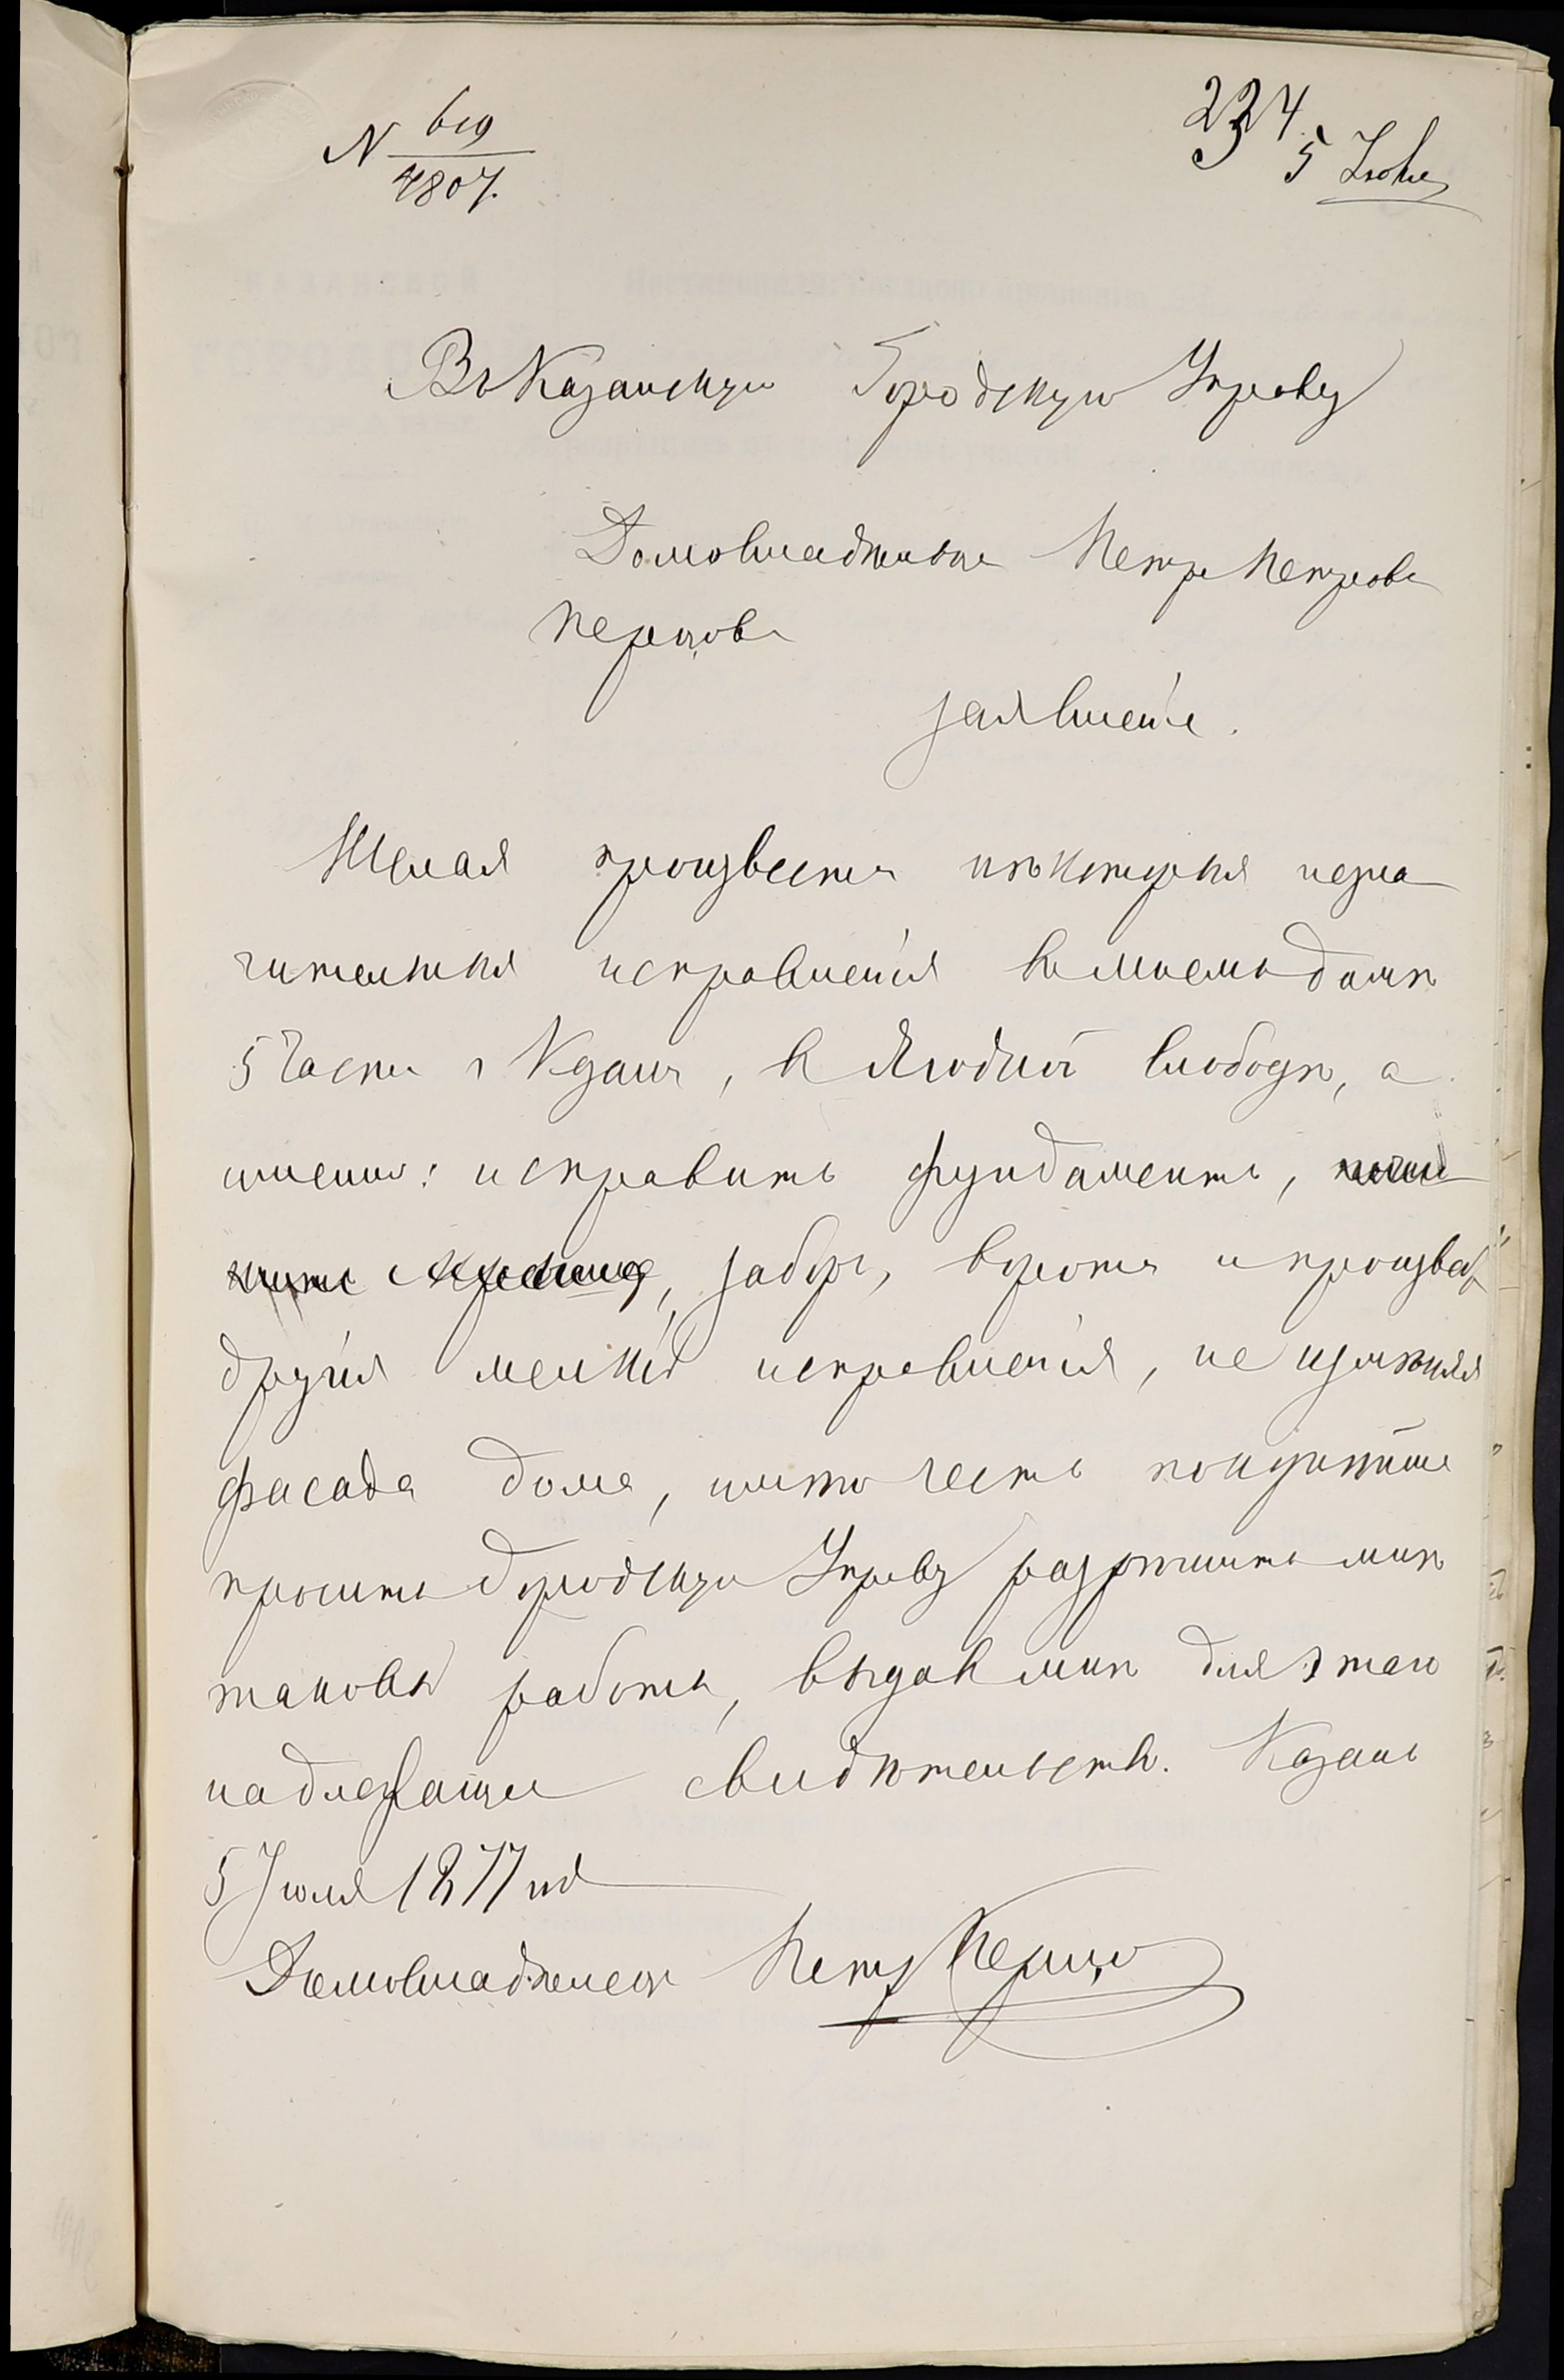 N 619
4807.
234
5 Июля
Въ Казанскую Городскую Управу
Домовладельца Петра Петрова
Перцова
заявление.
Желая произвести некоторыя незна
чительныя исправления въ моемъ доме
5 части г Казани, в Ягодной слободе, а
именно: исправить фундаментъ, почи
нить крышу, заборъ, ворота и произвести
другия мелкия исправления, не изменяя
фасада дома, имею честь покорнейше
просить Городскую Управу разрешить мне
таковыя работы, выдавъ мне для этого
надлежащее свидетельство. Казань
5 Июля 1877 год
Домовладелецъ Петръ Перцов